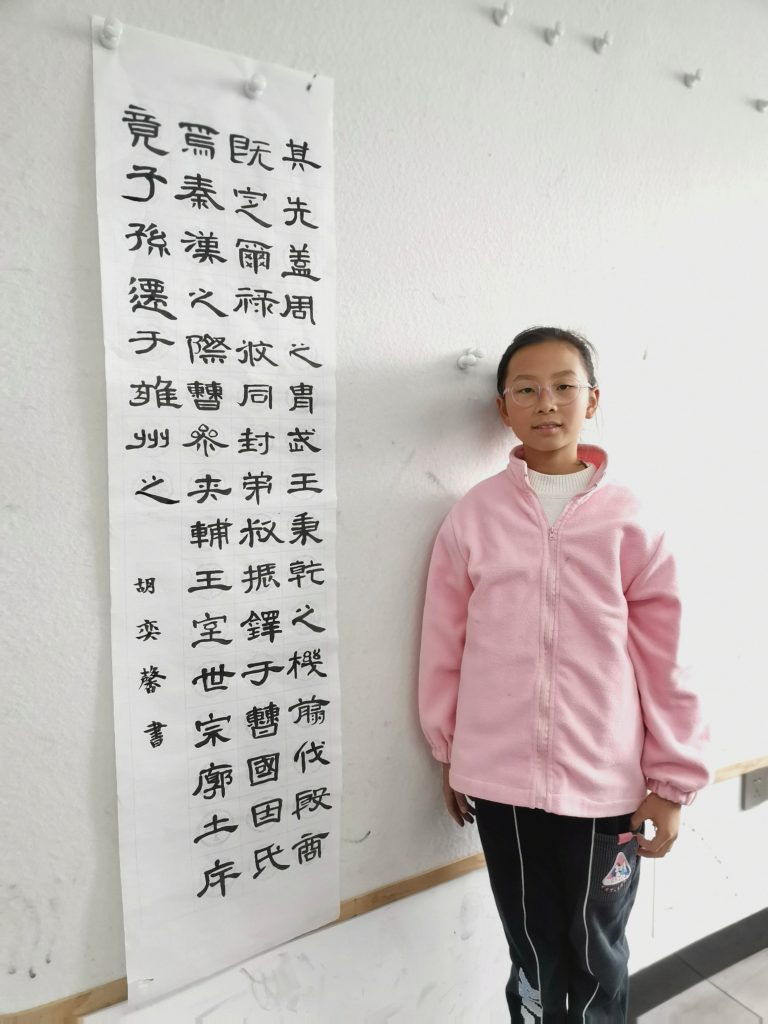 其先蓋周之胄武王秉乾之機翦伐殷商
既定爾禄攸同封弟叔振鐸于曹國因氏
焉秦漢之際曹參夾輔王室世宗廓土斥
竟子孫遷于雍州之
胡奕馨書